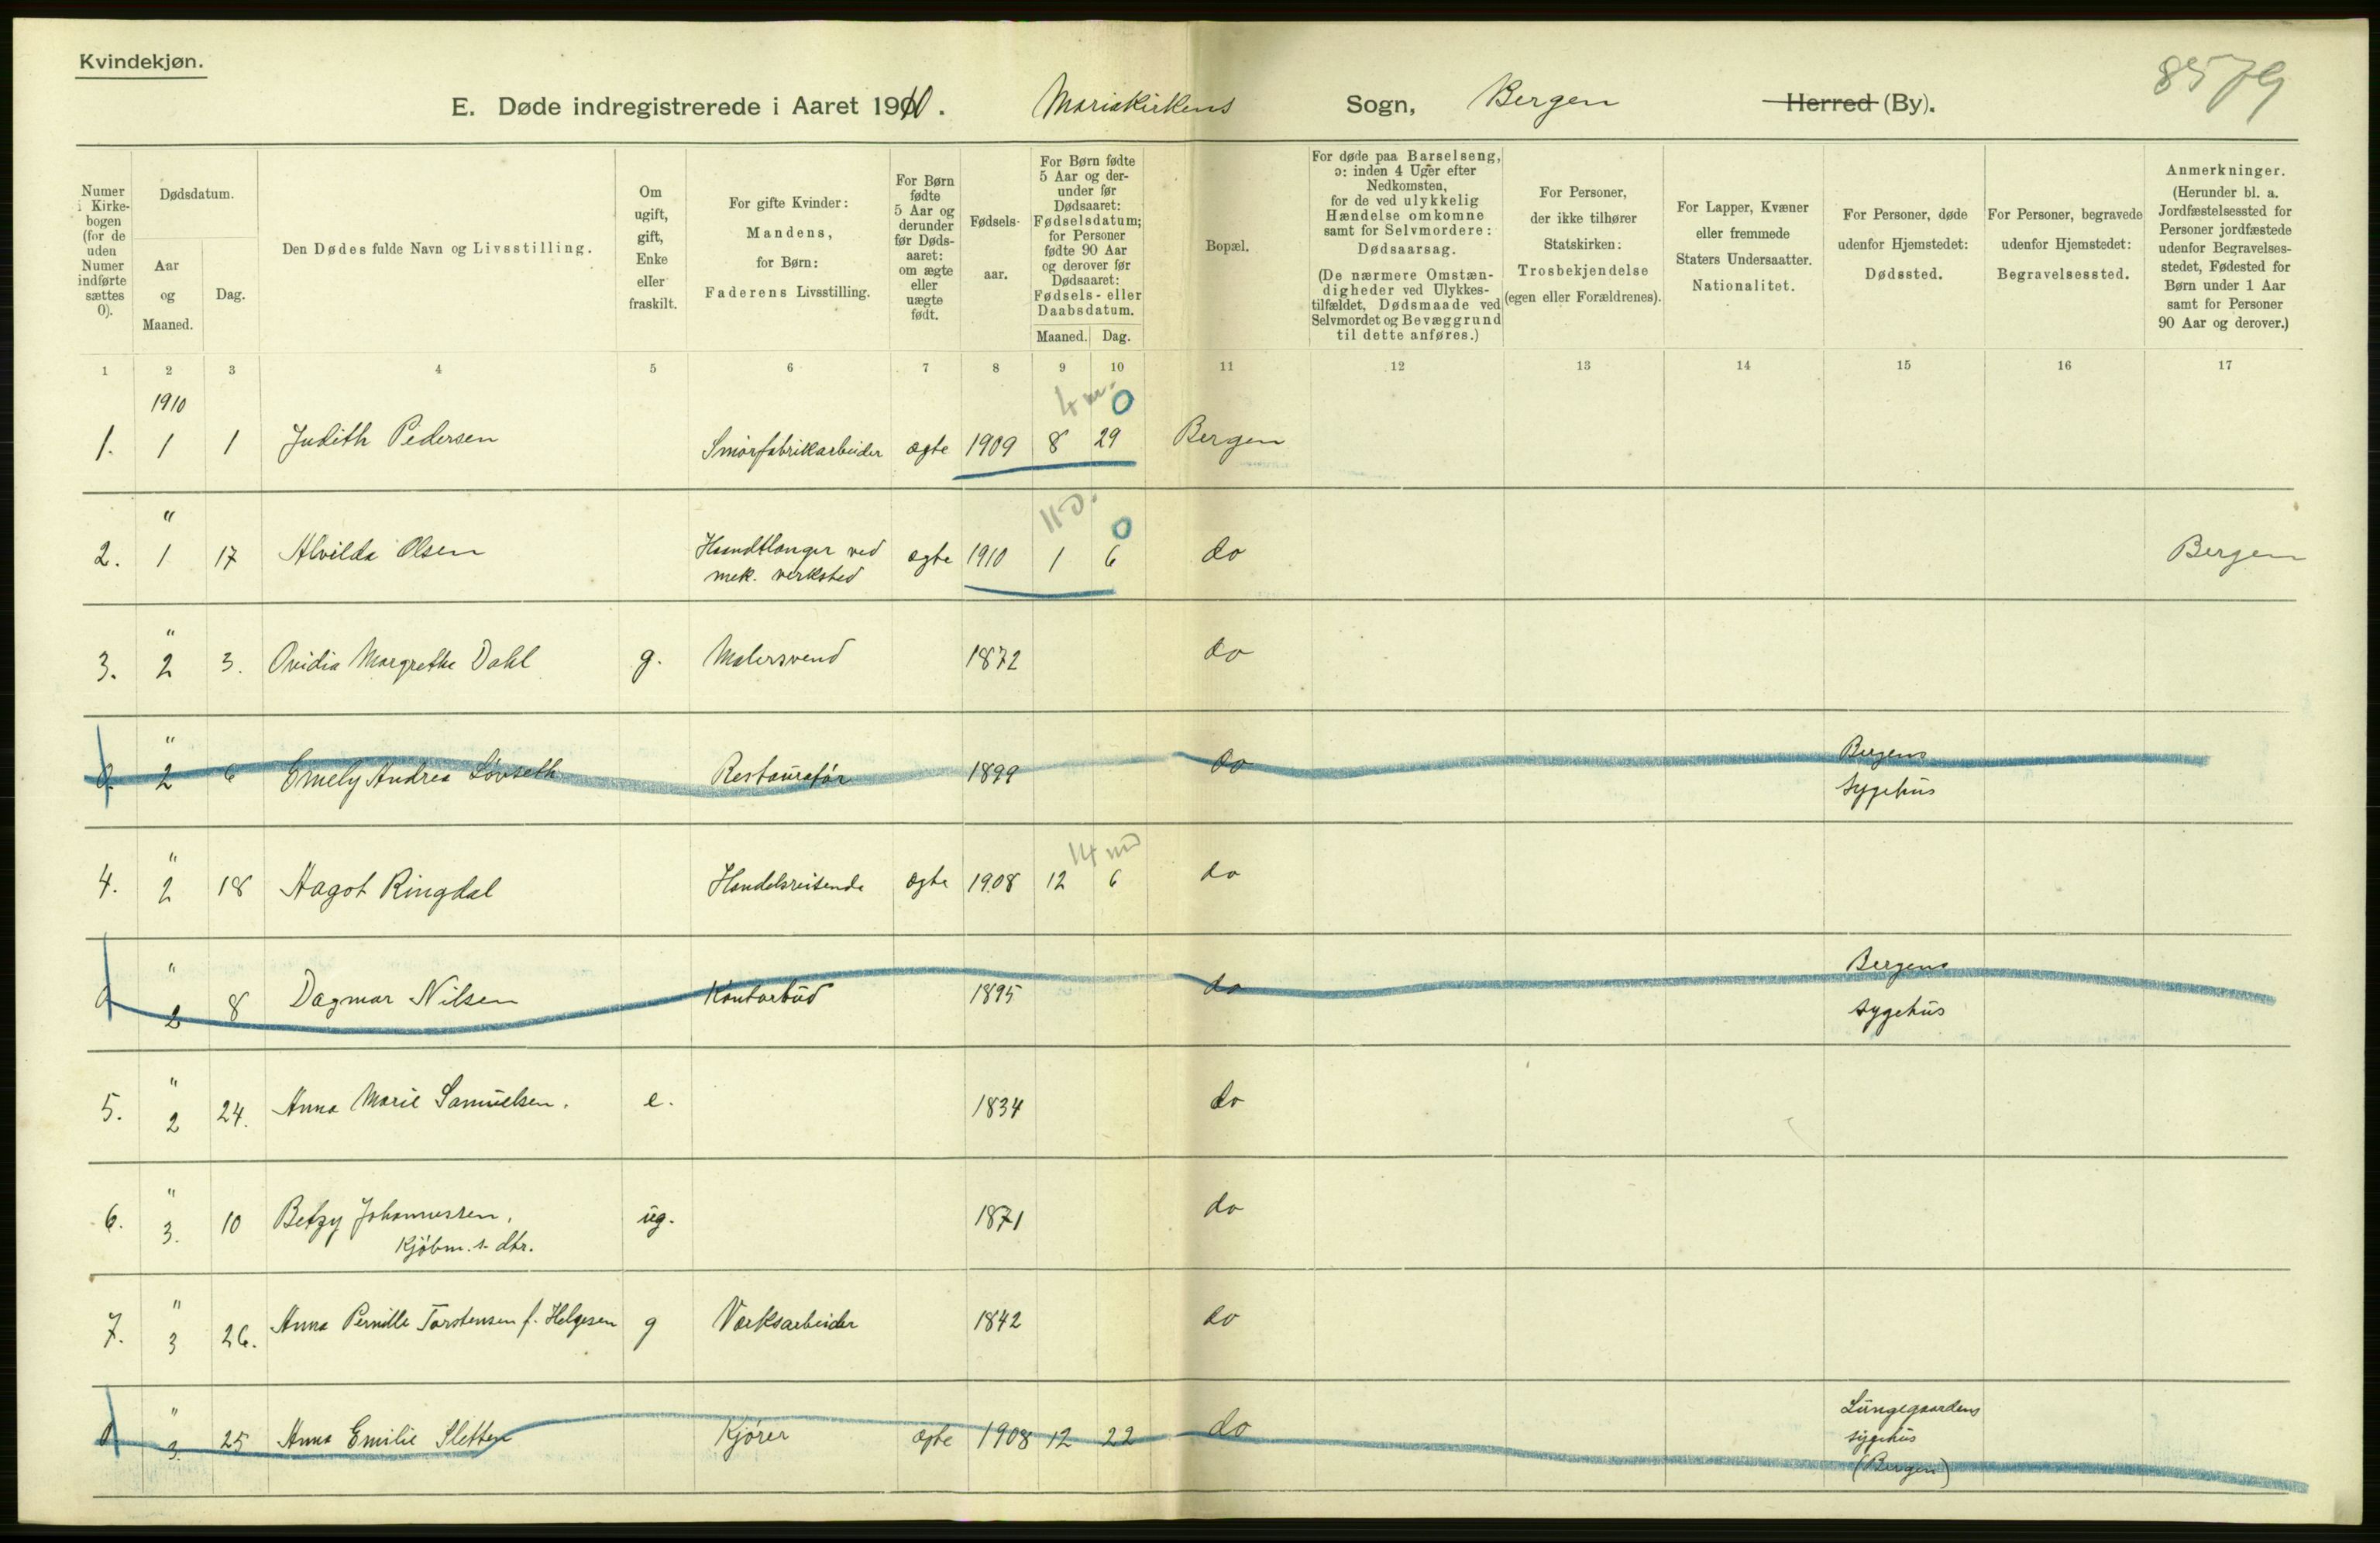 Kvindekjøn.
8579
E. Døde indregistrerede i Aaret 1910. Mariakirkens Sogn, Bergen Herred (By).
Numer i Kirkebogen (for de uden Numer indførte sættes 0).
Dødsdatum.
Aar og Maaned.
Dag.
Den Dødes fulde Navn og Livsstilling.
Om ugift, gift, Enke eller fraskilt.
For gifte Kvinder: Mandens, for Børn: Faderens Livsstilling.
For Børn fødte 5 Aar og derunder før Dødsaaret: om ægte eller uægte født.
Fødselsaar.
For Børn fødte 5 Aar og derunder før Dødsaaret: Fødselsdatum; for Personer fødte 90 Aar og derover før Dødsaaret: Fødsels- eller Daabsdatum.
Maaned. Dag.
Bopæl.
For døde paa Barselseng, ɔ: inden 4 Uger efter Nedkomsten, for de ved ulykkelig Hændelse omkomne samt for Selvmordere: Dødsaarsag.
(De nærmere Omstændigheder ved Ulykkestilfældet, Dødsmaade ved Selvmordet og Bevæggrund til dette anføres.)
For Personer, der ikke tilhører Statskirken: Trosbekjendelse (egen eller Forældrenes).
For Lapper, Kvæner eller fremmede Staters Undersaatter. Nationalitet.
For Personer, døde udenfor Hjemstedet: Dødssted.
For Personer, begravede udenfor Hjemstedet: Begravelsessted.
Anmerkninger. (Herunder bl. a. Jordfæstelsessted for Personer jordfæstede udenfor Begravelsesstedet, Fødested for Børn under 1 Aar samt for Personer 90 Aar og derover.)
1 2 3 4 5 6 7 8 9 10 11 12 13 14 15 16 17
1910 4 m. 0
1. 1 1 Judith Pedersen Smörfabrikarbeider ægte 1909 8 29 Bergen
" 11 D. 0
2. 1 17 Alvilda Olsen Haandtlanger ved mek. verksted ægte 1910 1 6 do Bergen
"
3. 2 3. Ovidia Margrethe Dahl g. Malersvend 1872 do
"
0. 2 6 Emely Andrea Lövseth Restauratör 1899 do Bergens sygehus
" 14 md
4. 2 18 Aagot Ringdal Handelsreisende ægte 1908 12 6 do
"
0 2 8 Dagmar Nilsen Kontorbud 1895 do Bergens sygehus
"
5. 2 24. Anna Marie Samuelsen. e. 1834 do
"
6. 3. 10 Betzy Johannessen, ug. 1871 do
Kjöbm.s. dtr.
"
7. 3 26. Anna Pernille Torstensen f. Helgesen g Værksarbeider 1842 do
"
0 3. 25 Anna Emilie Sletten Kjörer ægte 1908 12 22 do Lungegaardens sygehus (Bergen)